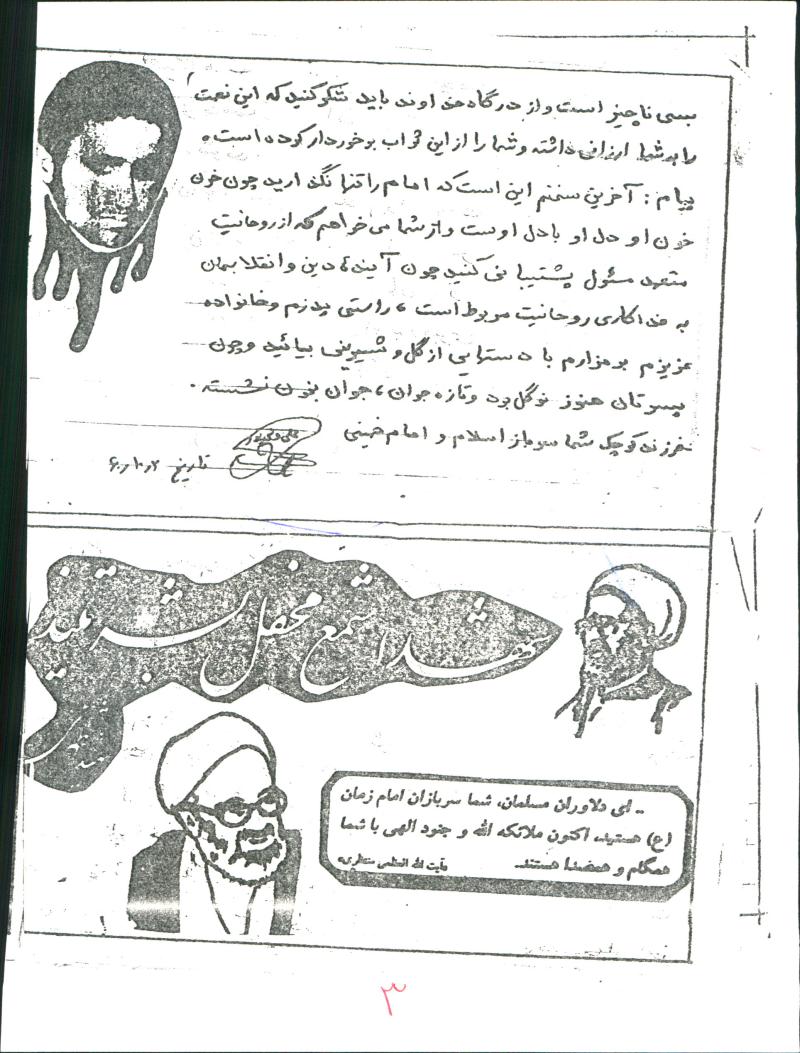 بسی ناچیز است و از درگاه خداوند باید شکر کنید که این نعمت
را به شما ارزانی داشته و شما را از این ثواب برخوردار کرده است.
پیام: آخرین سخنم این است که امام را تنها نگذارید چون خون
خون او دل او با دل اوست و از شما می‌خواهم که از روحانیت
متعهد مسئول پشتیبانی کنید چون آینده دین و انقلابمان
به فداکاری روحانیت مربوط است، راستی پدرم و خانواده
عزیزم بر مزارم با دستهایی از گل و شیرینی بیائید و چون
پسرتان هنوز نوگل بود و تازه جوان، جوان بخون نشسته.
فرزند کوچک شما سرباز اسلام و امام خمینی
تاریخ ۶۰٫۱۰٫۲
شهدا شمع محفل بشریتند
شهید مطهری
.. ای دلاوران مسلمان، شما سربازان امام زمان
(ع) هستید، اکنون ملائکه الله و جنود الهی با شما
همگام و همصدا هستند.
«آیت الله العظمی منتظری»
۳